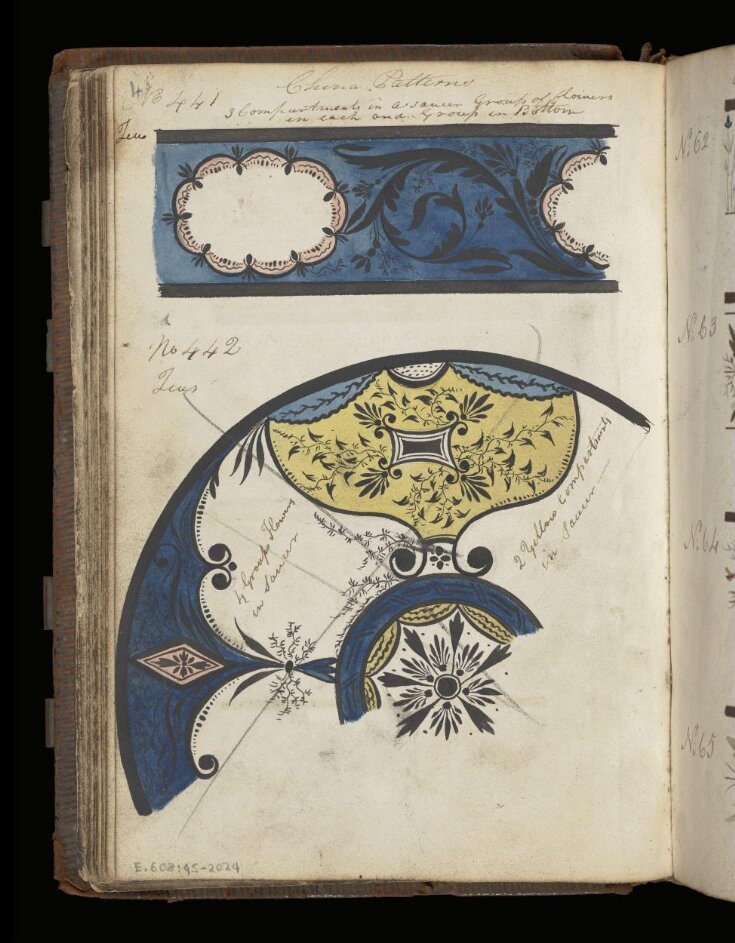 45
No 441
China Patterns
3 Compartments in a saucer Group of flowers
in each and Group in Bottom
No 442
4 Groups Flowers
in saucer
2 Yellow Compartments
in Saucer
E.608:45-2024
No. 62
No. 63
No. 64
No. 65